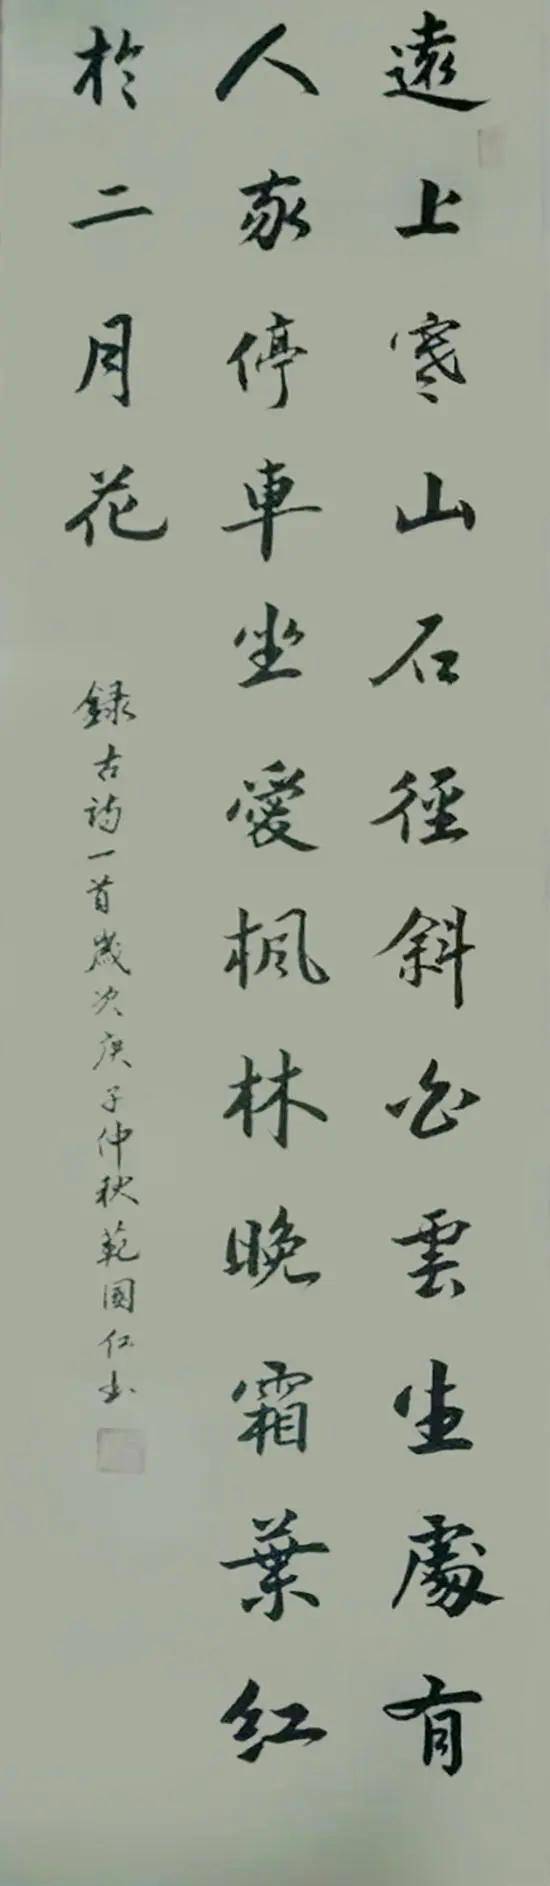 遠上寒山石徑斜白雲生處有
人家停車坐愛楓林晚霜葉紅
於二月花
錄古詩一首歲次庚子仲秋範國仁書